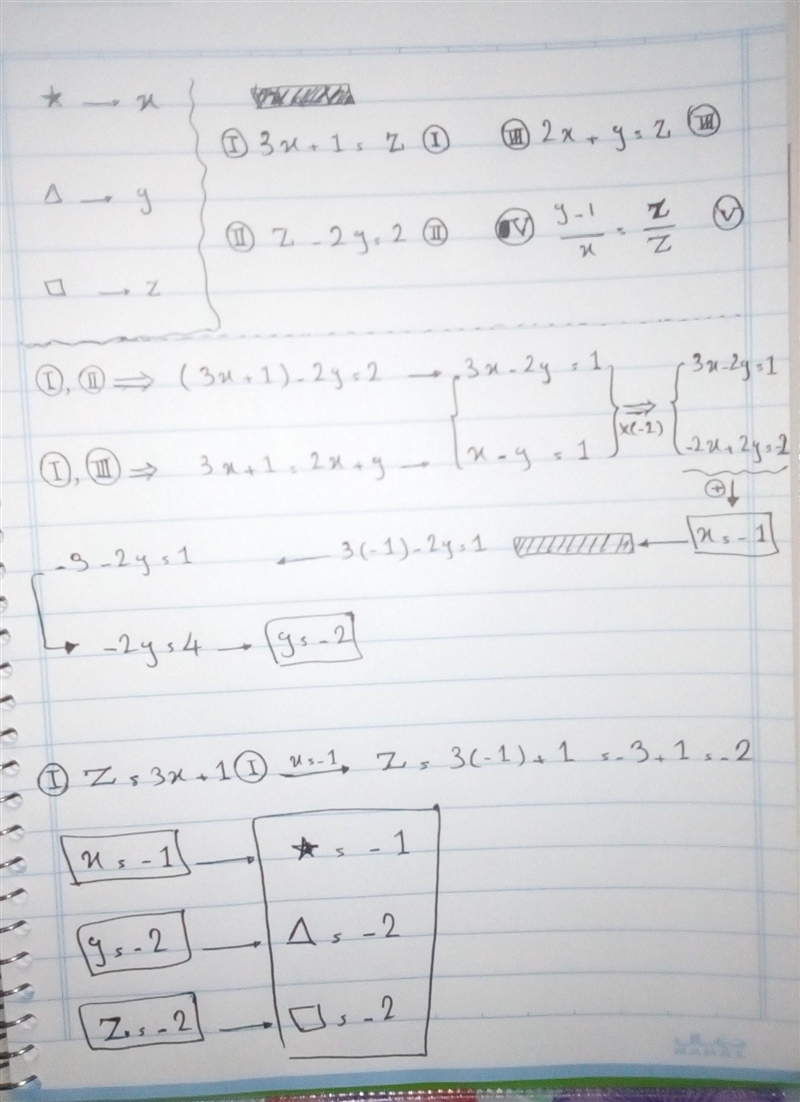 ★ → x
△ → y
□ → z
Ⓘ 3x + 1 = Z Ⓘ
Ⅲ 2x + y = Z Ⅲ
Ⅱ Z - 2y = 2 Ⅱ
Ⅳ (y-1)/x = Z/Z Ⅴ
Ⓘ, Ⅱ ⟹ (3x + 1) - 2y = 2 → { 3x - 2y = 1 } ⟹ { 3x - 2y = 1
Ⓘ, Ⅲ ⟹ 3x + 1 = 2x + y → { x - y = 1 } x(-2) { -2x + 2y = -2
⊕ ↓
-3 - 2y = 1 ← 3(-1) - 2y = 1 ← x = -1
→ -2y = 4 → y = -2
Ⓘ Z = 3x + 1 Ⓘ x = -1 → Z = 3(-1) + 1 = -3 + 1 = -2
x = -1 → ★ = -1
y = -2 → △ = -2
Z = -2 → □ = -2